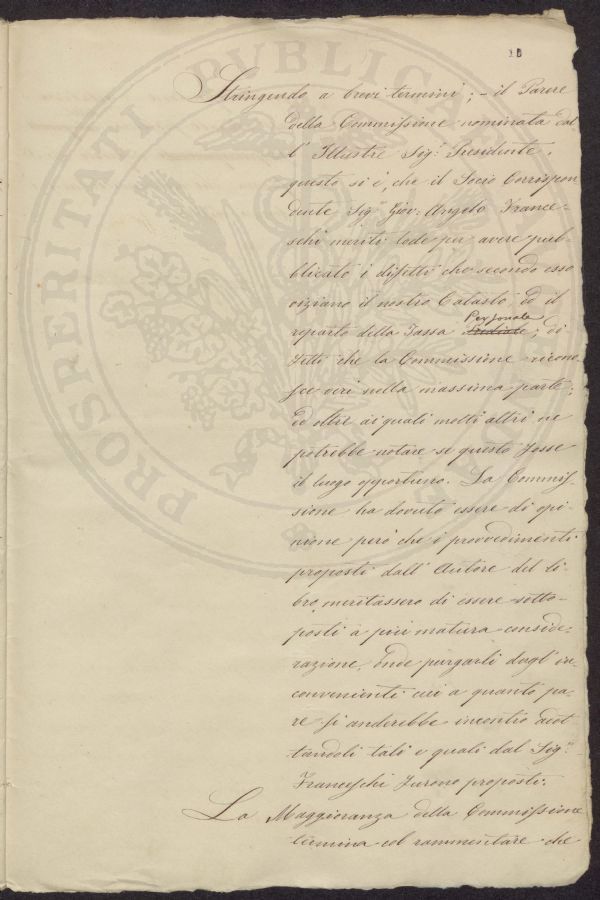 18
Stringendo a brevi termini; - il Parere
della Commissione nominata dal
l' Illustre Sig.r Presidente,
questo si è, che il Socio Corrispon
dente Sig.r Giov: Angelo France-
schi meriti lode per avere pub-
blicato i difetti che secondo esso
viziano il nostro Catasto, ed il
reparto della Tassa Prediale; di
Personale
fetti che la Commissione ricono
sce veri nella massima parte;
ed oltre ai quali molti altri ne
potrebbe notare se questo fosse
il luogo opportuno. La Commis-
sione ha dovuto essere di opi-
nione però che i provvedimenti
proposti dall' Autore del li-
bro, meritassero di essere sotto-
posti a più matura conside-
razione, onde purgarli dagl' in-
convenienti cui a quanto pa-
re si anderebbe incontro adot
tandoli tali e quali dal Sig.r
Franceschi furono proposti.
La Maggioranza della Commissione
termina col rammentare che
PROSPERITATI PUBLICAE